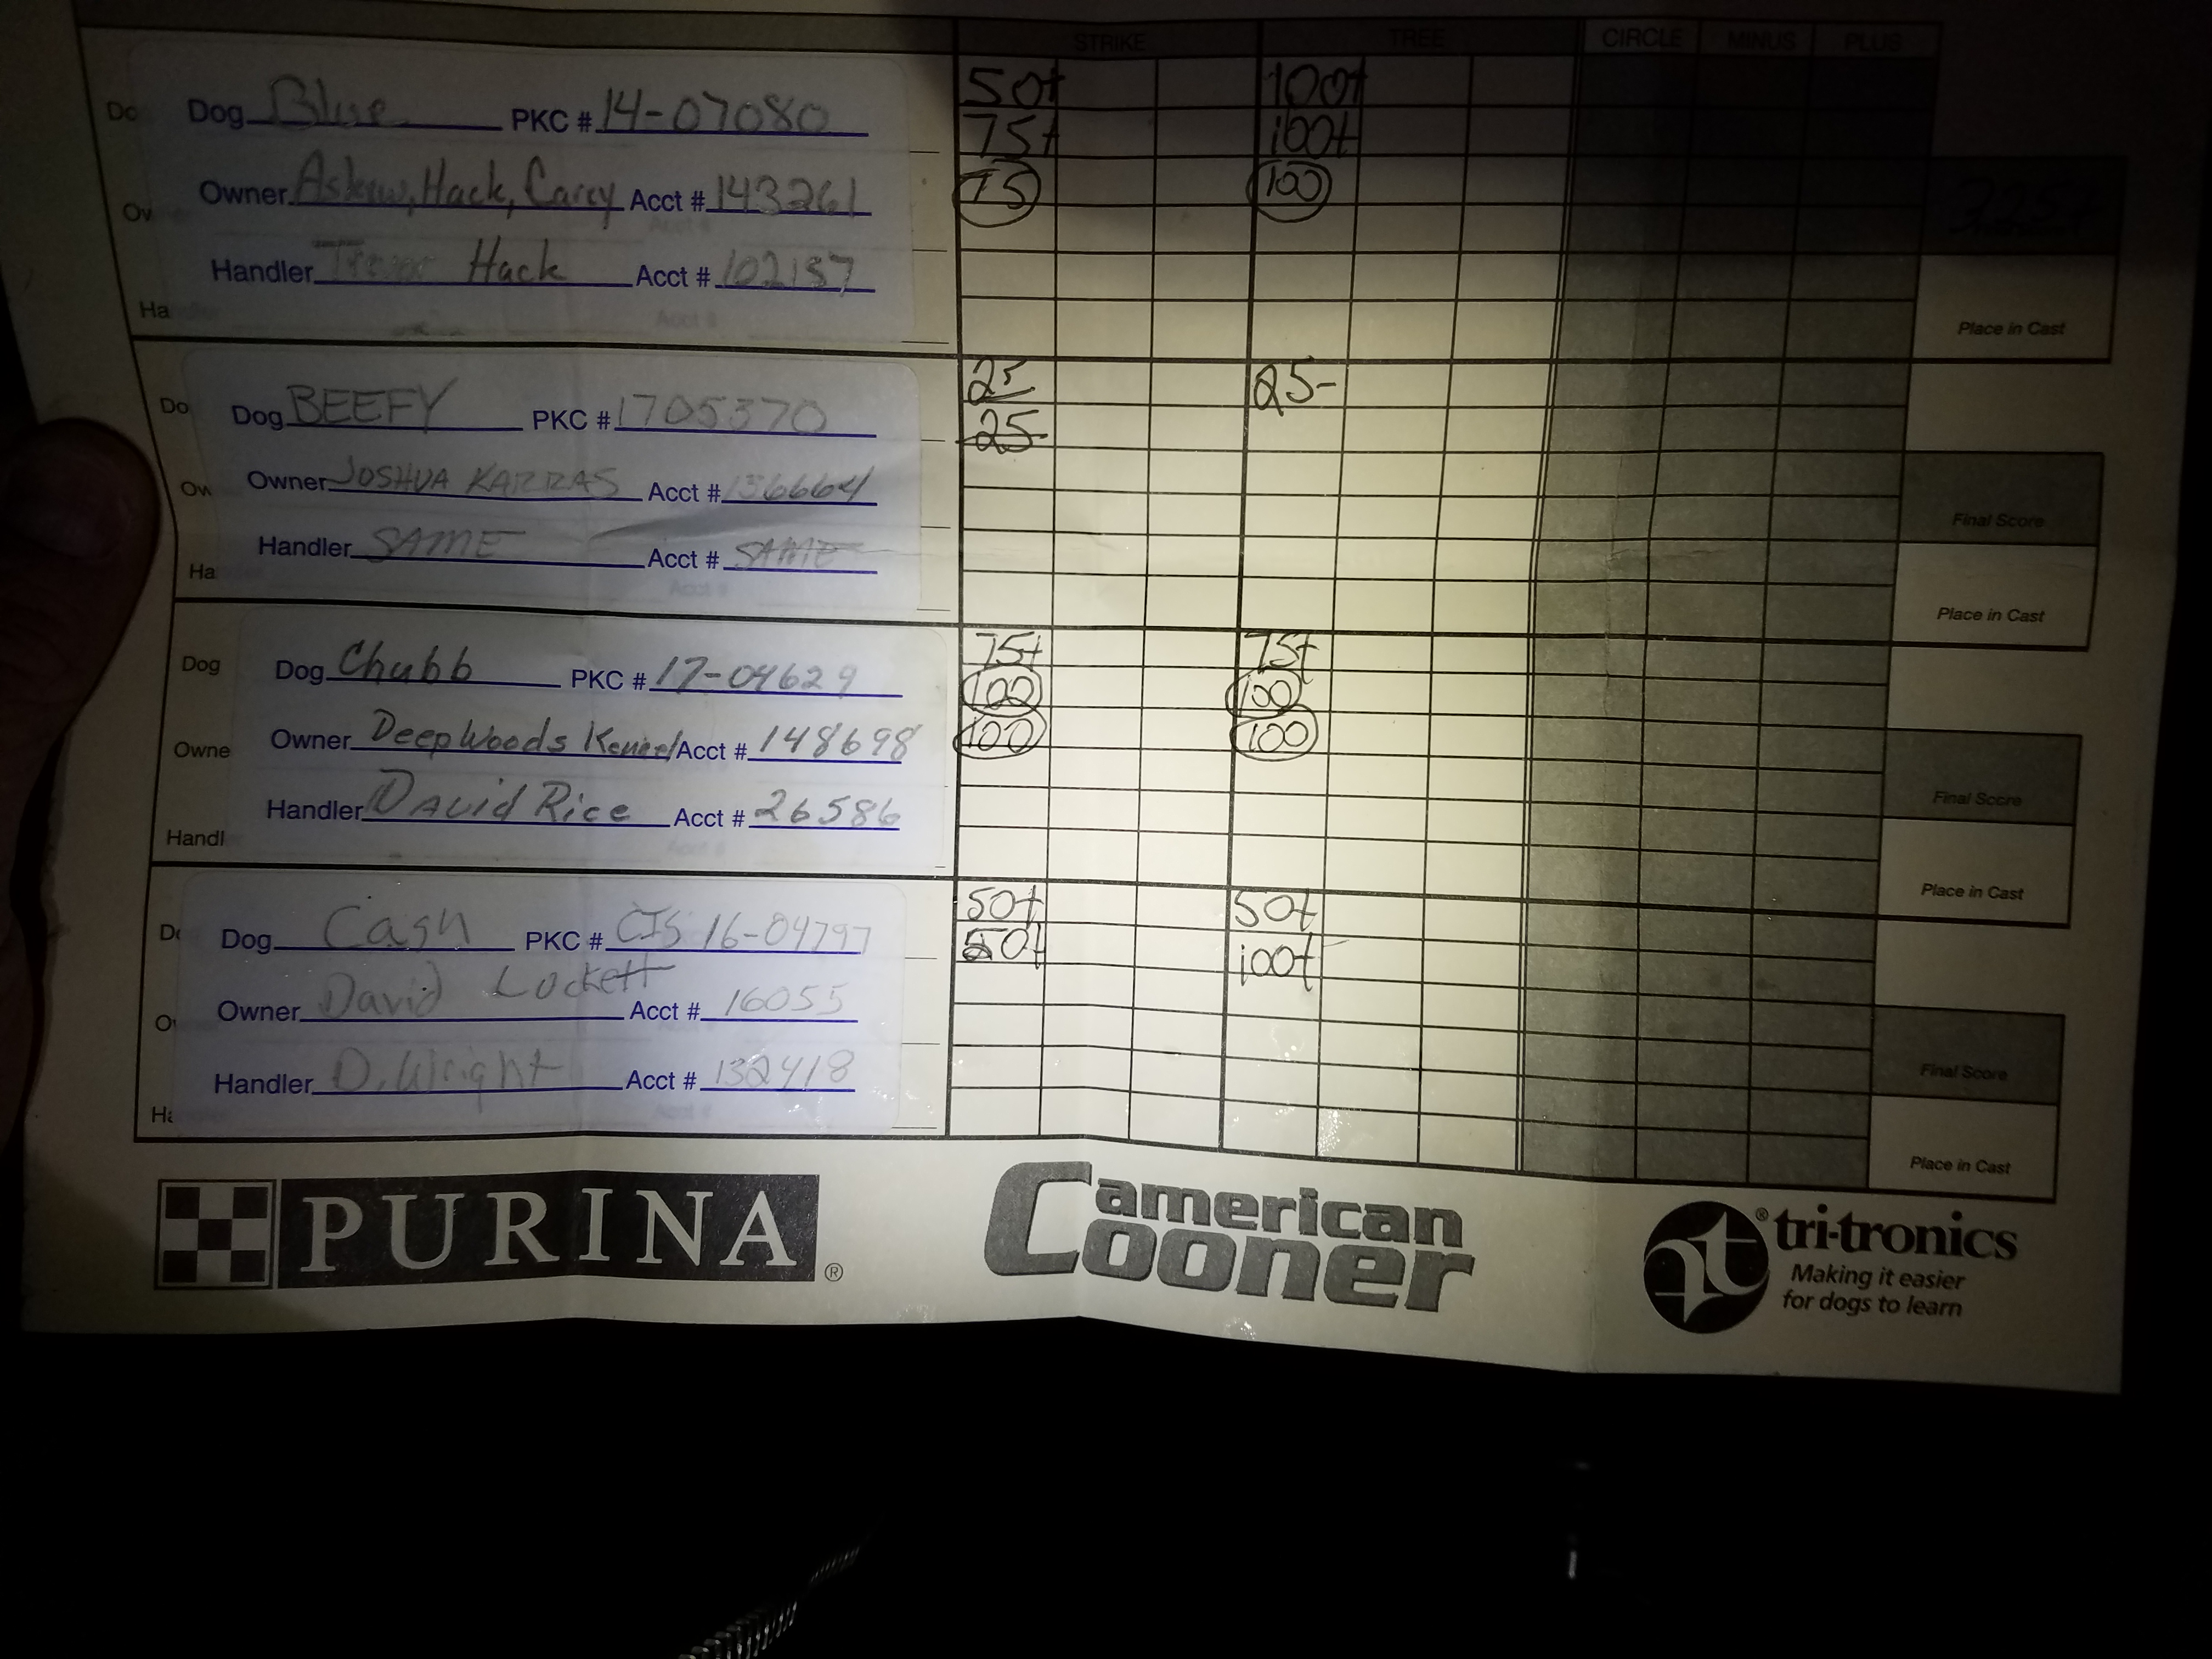 STRIKE TREE CIRCLE MINUS PLUS
Do Dog Blue PKC # 14-07080 50+ 100+
75+ 100+
Ow Owner Askew, Hack, Carey Acct # 143261 75 100 325+
Handler Trevor Hack Acct # 102157
Ha Place in Cast
25 25-
Do Dog BEEFY PKC # 1705370 25
Ow Owner JOSHUA KARRAS Acct # 136664 Final Score
Handler SAME Acct # SAME
Ha Place in Cast
75+ 75+
Dog Dog Chubb PKC # 17-04629 100 100
Owne Owner DeepWoods Kennel Acct # 148698 100 100
Handler David Rice Acct # 26586 Final Score
Handl Place in Cast
50+ 50+
Do Dog Cash PKC # CJS 16-04797 50+ 100+
O Owner David Lockett Acct # 16055
Handler D. Wright Acct # 132418 Final Score
Ha Place in Cast
PURINA ® american Cooner tt ® tri-tronics
Making it easier
for dogs to learn